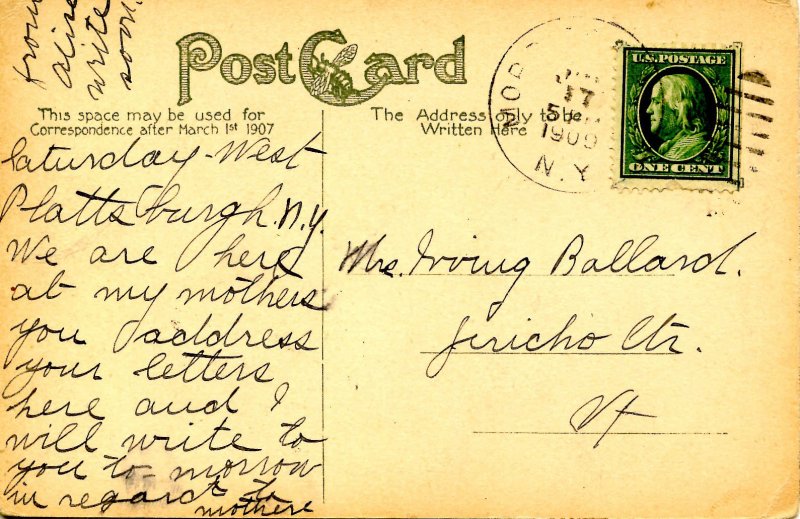 from
Alise
write
soon.
Post Card
This space may be used for
Correspondence after March 1st 1907
The Address only to be
Written Here
MO
17
5
1909
N.Y.
U.S. POSTAGE
ONE CENT
Saturday - West
Plattsburgh. N.Y.
We are here
at my mothers
you address
your letters
here and I
will write to
you to-morrow
in regard to
mothere
Mrs. Irving Ballard.
Jericho Ctr.
Vt